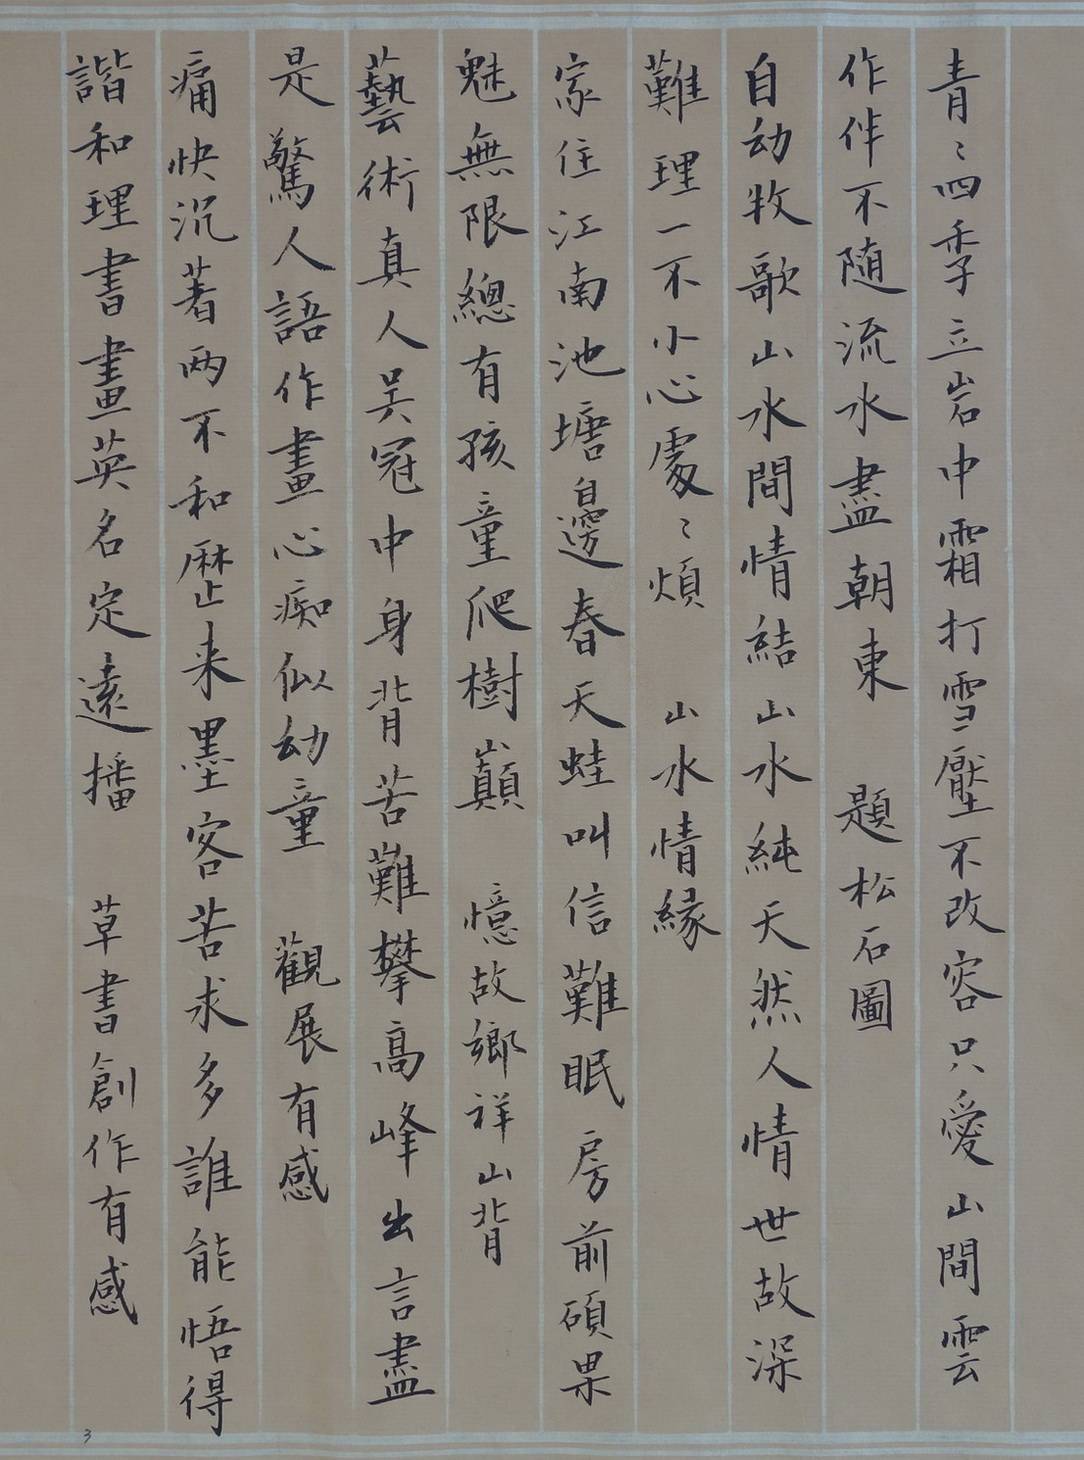 青〻四季立岩中霜打雪壓不改容只愛山間雲
作伴不随流水盡朝東 題松石圖
自动牧歌山水間情結山水純天然人情世故深
難理一不小心處〻煩 山水情緣
家住江南池塘邊春天蛙叫信難眠房前碩果
魅無限總有孩童爬樹巔 憶故鄉祥山背
藝術真人吴冠中身背苦難攀高峰出言盡
是驚人語作畫心痴似幼童 觀展有感
痛快沉著两不和歷来墨客苦求多誰能悟得
諧和理書畫英名定遠播 草書創作有感
3